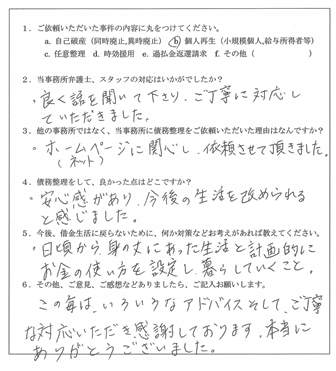 1. ご依頼いただいた事件の内容に丸をつけてください。
a. 自己破産（同時廃止,異時廃止） b. 個人再生（小規模個人,給与所得者等）
c. 任意整理 d. 時効援用 e. 過払金返還請求 f. その他（ ）
2. 当事務所弁護士、スタッフの対応はいかがでしたか？
・良く話を聞いて下さり、ご丁寧に対応し
ていただきました。
3. 他の事務所ではなく、当事務所に債務整理をご依頼いただいた理由はなんですか？
・ホームページに関心し、依頼させて頂きました。
（ネット）
4. 債務整理をして、良かった点はどこですか？
・安心感があり、今後の生活を改められる
と感じました。
5. 今後、借金生活に戻らないために、何か対策などお考えがあれば教えてください。
・日頃から、身の丈にあった生活と計画的に
お金の使い方を設定し、暮らしていくこと。
6. その他、ご意見、ご感想などありましたら、ご記入お願いします。
この毎は、いろいろなアドバイスそして、ご丁寧
な対応いただき感謝しております。本当に
ありがとうございました。